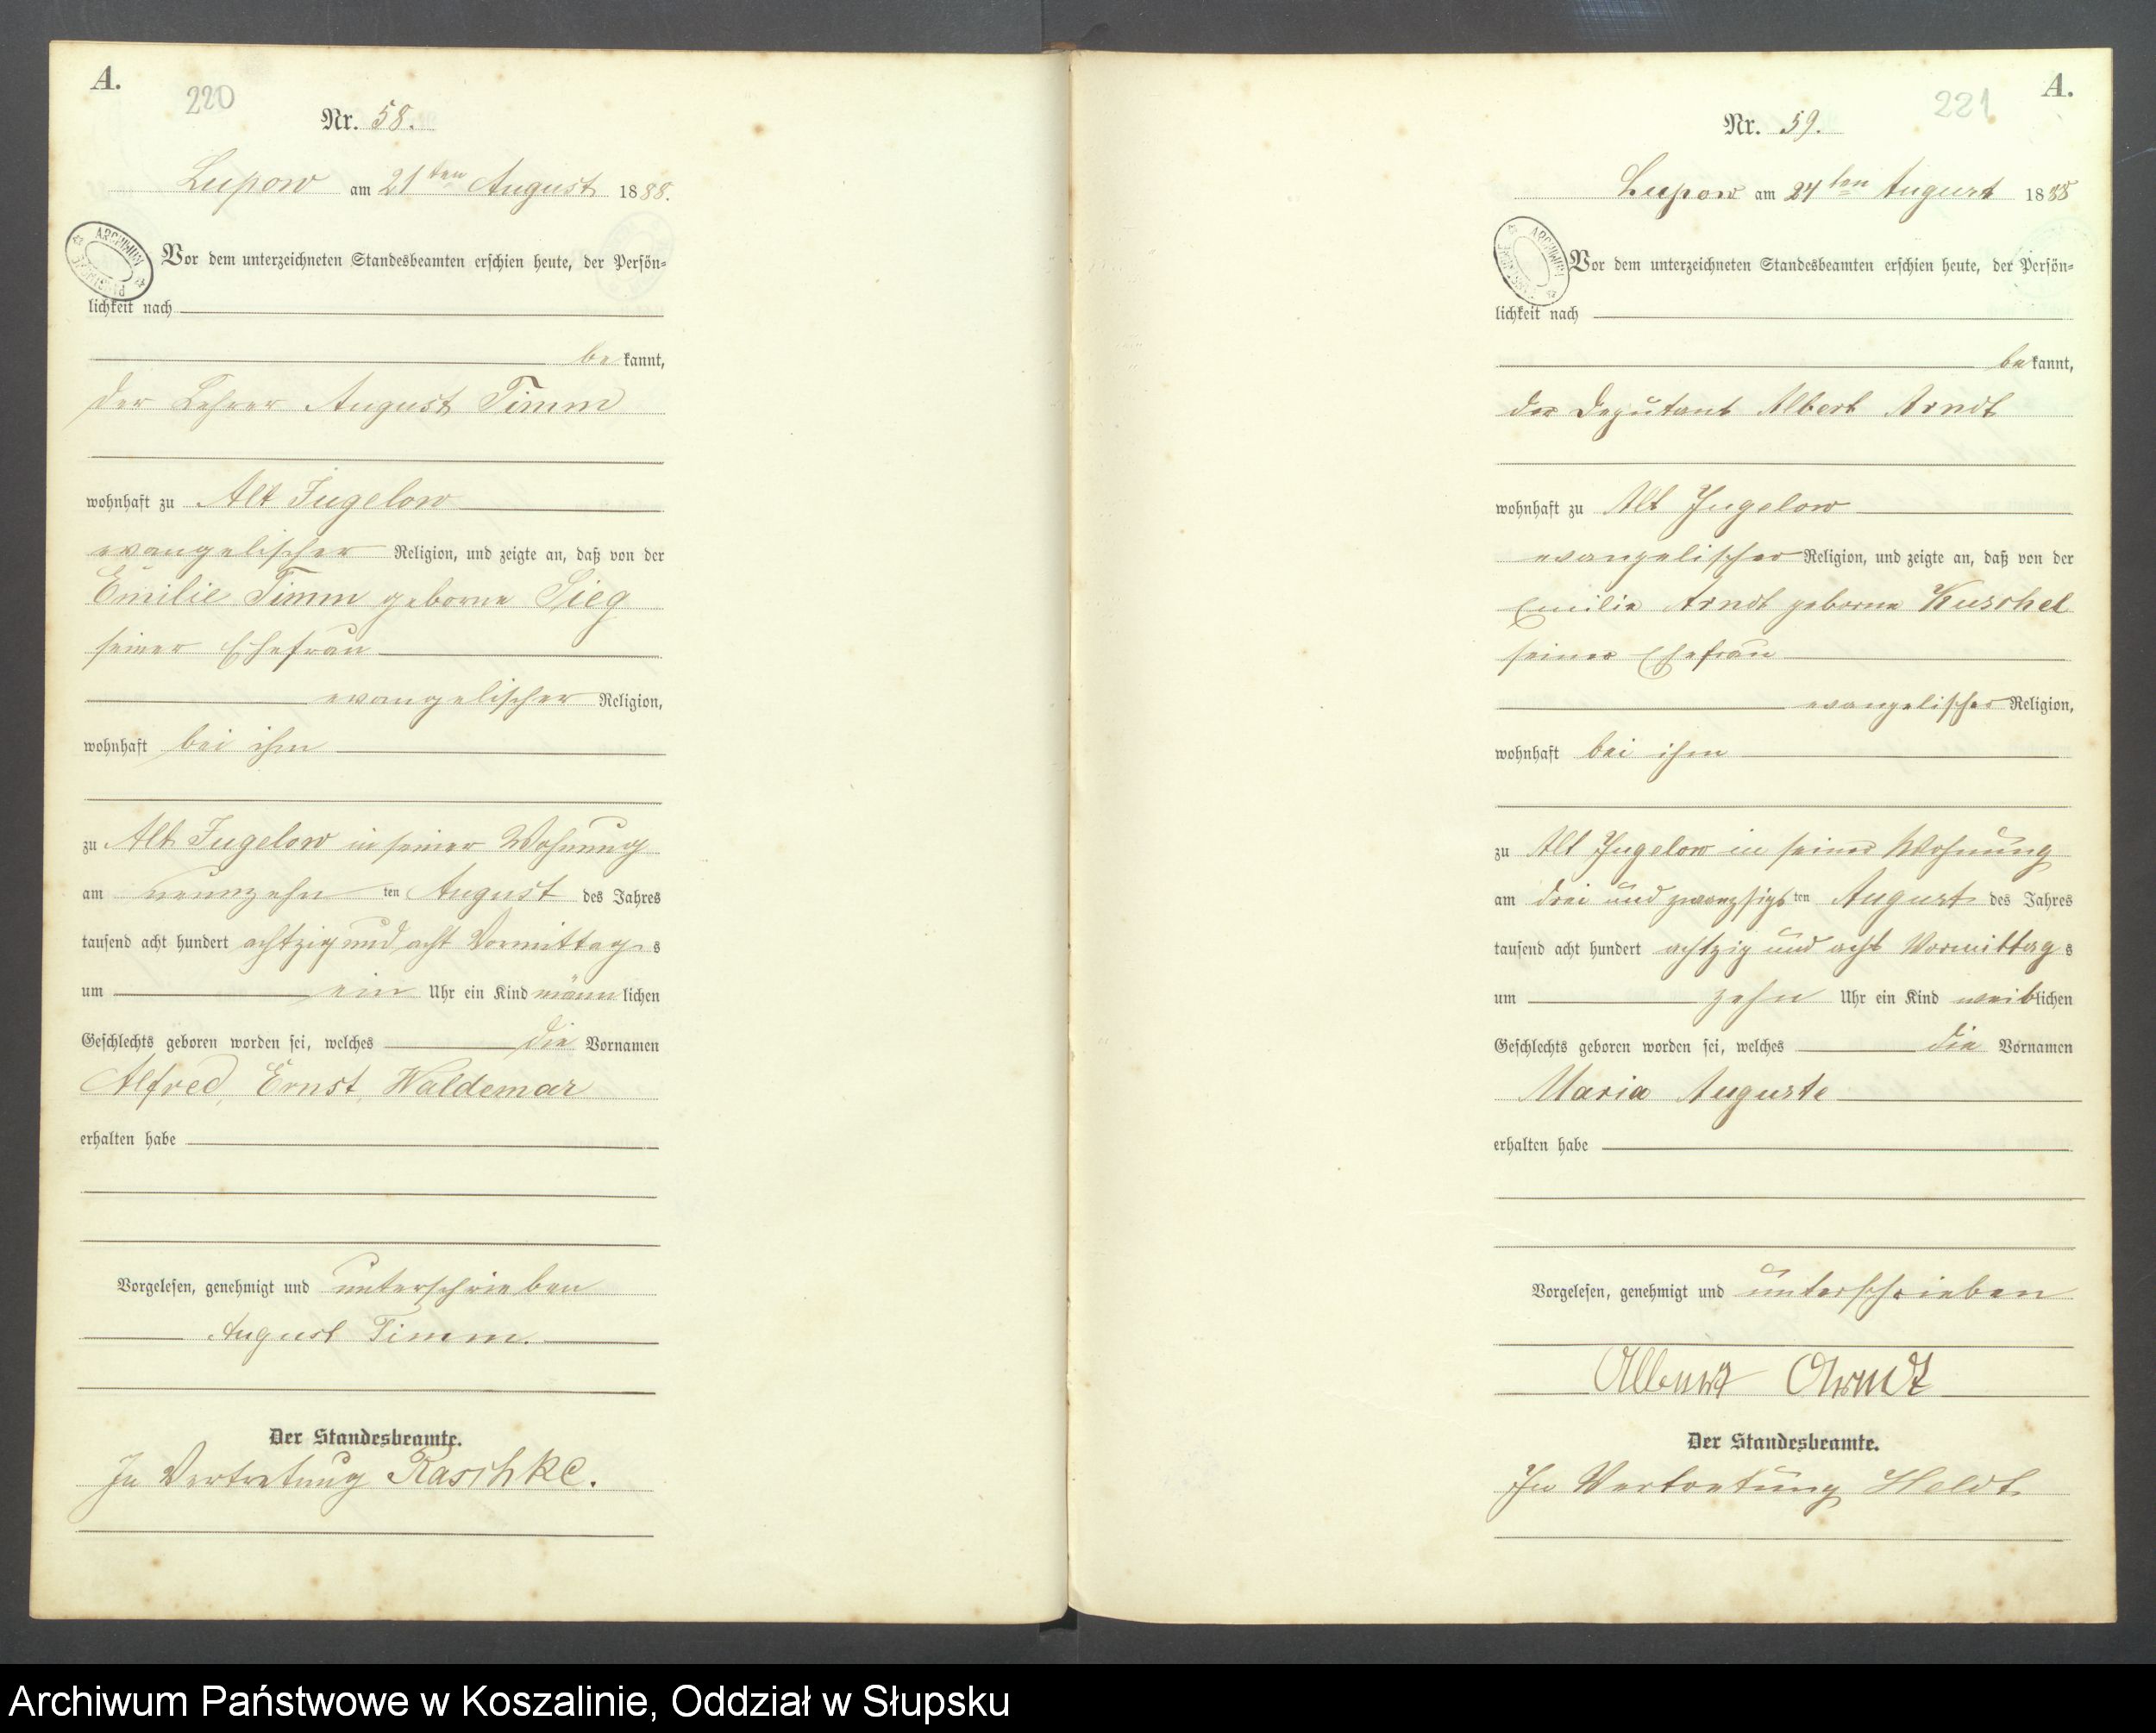 A.
220
Nr. 58.
Lupow am 21ten August 1888.
ARCHIWUM PAŃSTWOWE
Vor dem unterzeichneten Standesbeamten erschien heute, der Persön-
lichkeit nach
be kannt,
der Lehrer August Timm
wohnhaft zu Alt Jugelow
evangelischer Religion, und zeigte an, daß von der
Emilie Timm geborne Sieg
seiner Ehefrau
evangelischer Religion,
wohnhaft bei ihm
zu Alt Jugelow in seiner Wohnung
am neunzehn ten August des Jahres
tausend acht hundert achtzig und acht Vormittag s
um ein Uhr ein Kind männ lichen
Geschlechts geboren worden sei, welches die Vornamen
Alfred, Ernst, Waldemar
erhalten habe
Vorgelesen, genehmigt und unterschrieben
August Timm.
Der Standesbeamte.
In Vertretung Raschke.
A.
221
Nr. 59.
Lupow am 24ten August 1888
ARCHIWUM PAŃSTWOWE
Vor dem unterzeichneten Standesbeamten erschien heute, der Persön-
lichkeit nach
be kannt,
der Deputant Albert Arndt
wohnhaft zu Alt Jugelow
evangelischer Religion, und zeigte an, daß von der
Emilie Arndt geborne Kuschel
seiner Ehefrau
evangelischer Religion,
wohnhaft bei ihm
zu Alt Jugelow in seiner Wohnung
am drei und zwanzigs ten August des Jahres
tausend acht hundert achtzig und acht Vormittag s
um zehn Uhr ein Kind weib lichen
Geschlechts geboren worden sei, welches die Vornamen
Maria Auguste
erhalten habe
Vorgelesen, genehmigt und unterschrieben
Albert Arndt
Der Standesbeamte.
In Vertretung Heldt
Archiwum Państwowe w Koszalinie, Oddział w Słupsku